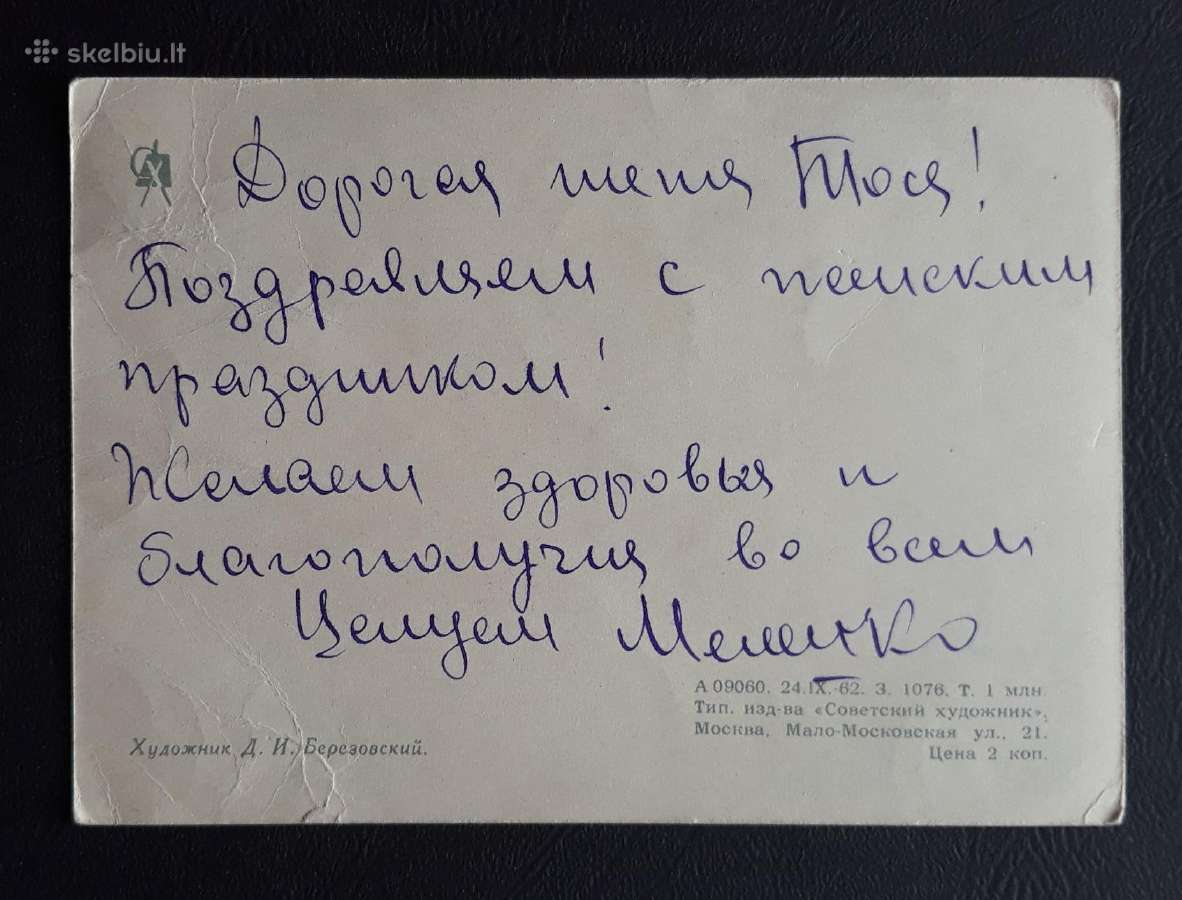 skelbiu.lt
Дорогая тетя Тося!
Поздравляем с женским
праздником!
Желаем здоровья и
благополучия во всем
Целуем Меленко
А 09060. 24.IX.-62. З. 1076. Т. 1 млн.
Тип. изд-ва «Советский художник»,
Москва, Мало-Московская ул., 21.
Цена 2 коп.
Художник Д. И. Березовский.